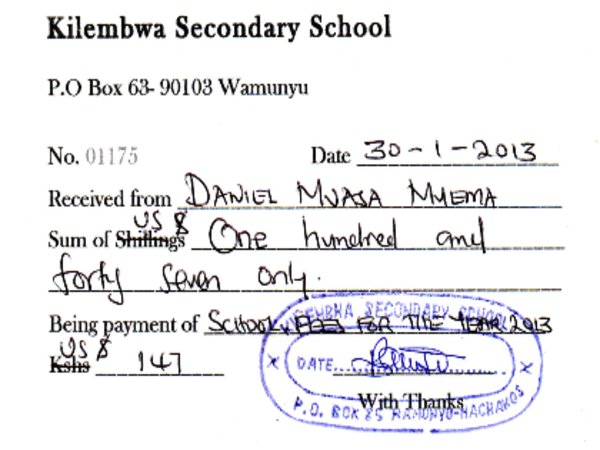 Kilembwa Secondary School
P.O Box 63- 90103 Wamunyu
No. 01175 Date 30-1-2013
Received from DANIEL MUASA
US $
Sum of Shillings One hundred and
forty seven only.
Being payment of SCHOOL FEES FOR THE YEAR 2013
US $
Kshs 147
SECONDARY SCHOOL
DATE
With Thanks
P.O. BOX 85